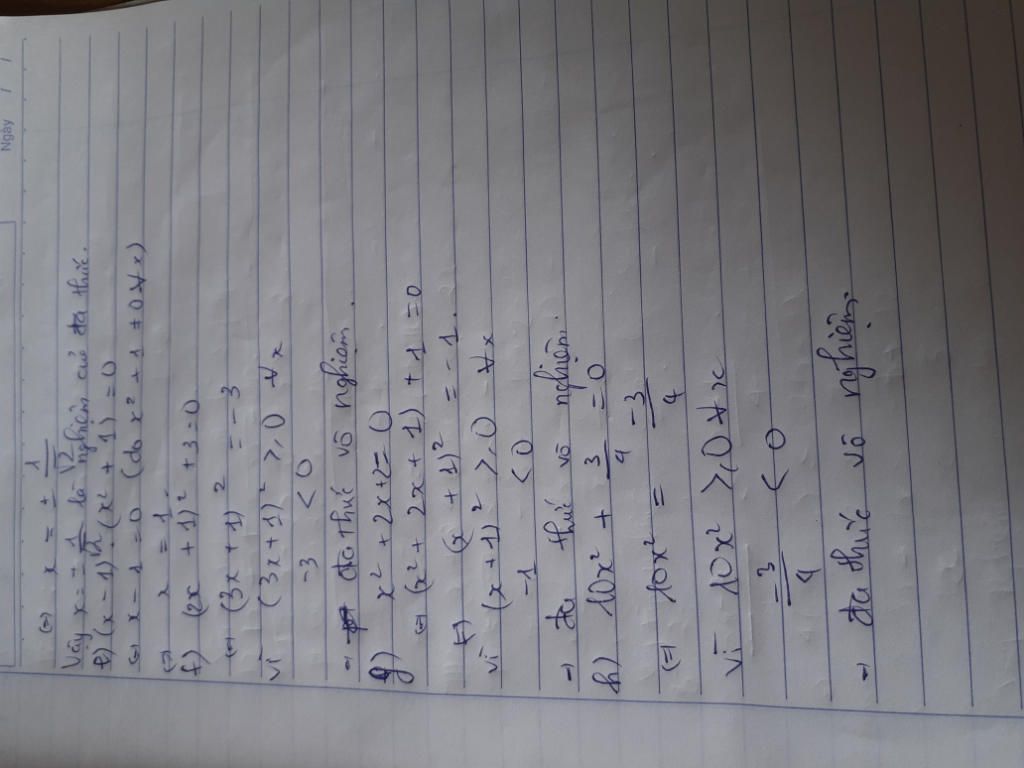 Ngày / /
⇔ x = ± 1/√2
Vậy x = ± 1/√2 là nghiệm của đa thức.
e) (x - 1) . (x² + 1) = 0
⇔ x - 1 = 0 (do x² + 1 ≠ 0 ∀x)
⇔ x = 1.
f) (2x + 1)² + 3 = 0
⇔ (3x + 1)² = -3
vì (3x + 1)² ⩾ 0 ∀x
-3 < 0
→ đa thức vô nghiệm.
g) x² + 2x + 2 = 0
⇔ (x² + 2x + 1) + 1 = 0
⇔ (x + 1)² = -1.
vì (x + 1)² ⩾ 0 ∀x
-1 < 0
→ đa thức vô nghiệm.
h) 10x² + 3/4 = 0
⇔ 10x² = -3/4
vì 10x² ⩾ 0 ∀x
-3/4 < 0
→ đa thức vô nghiệm.